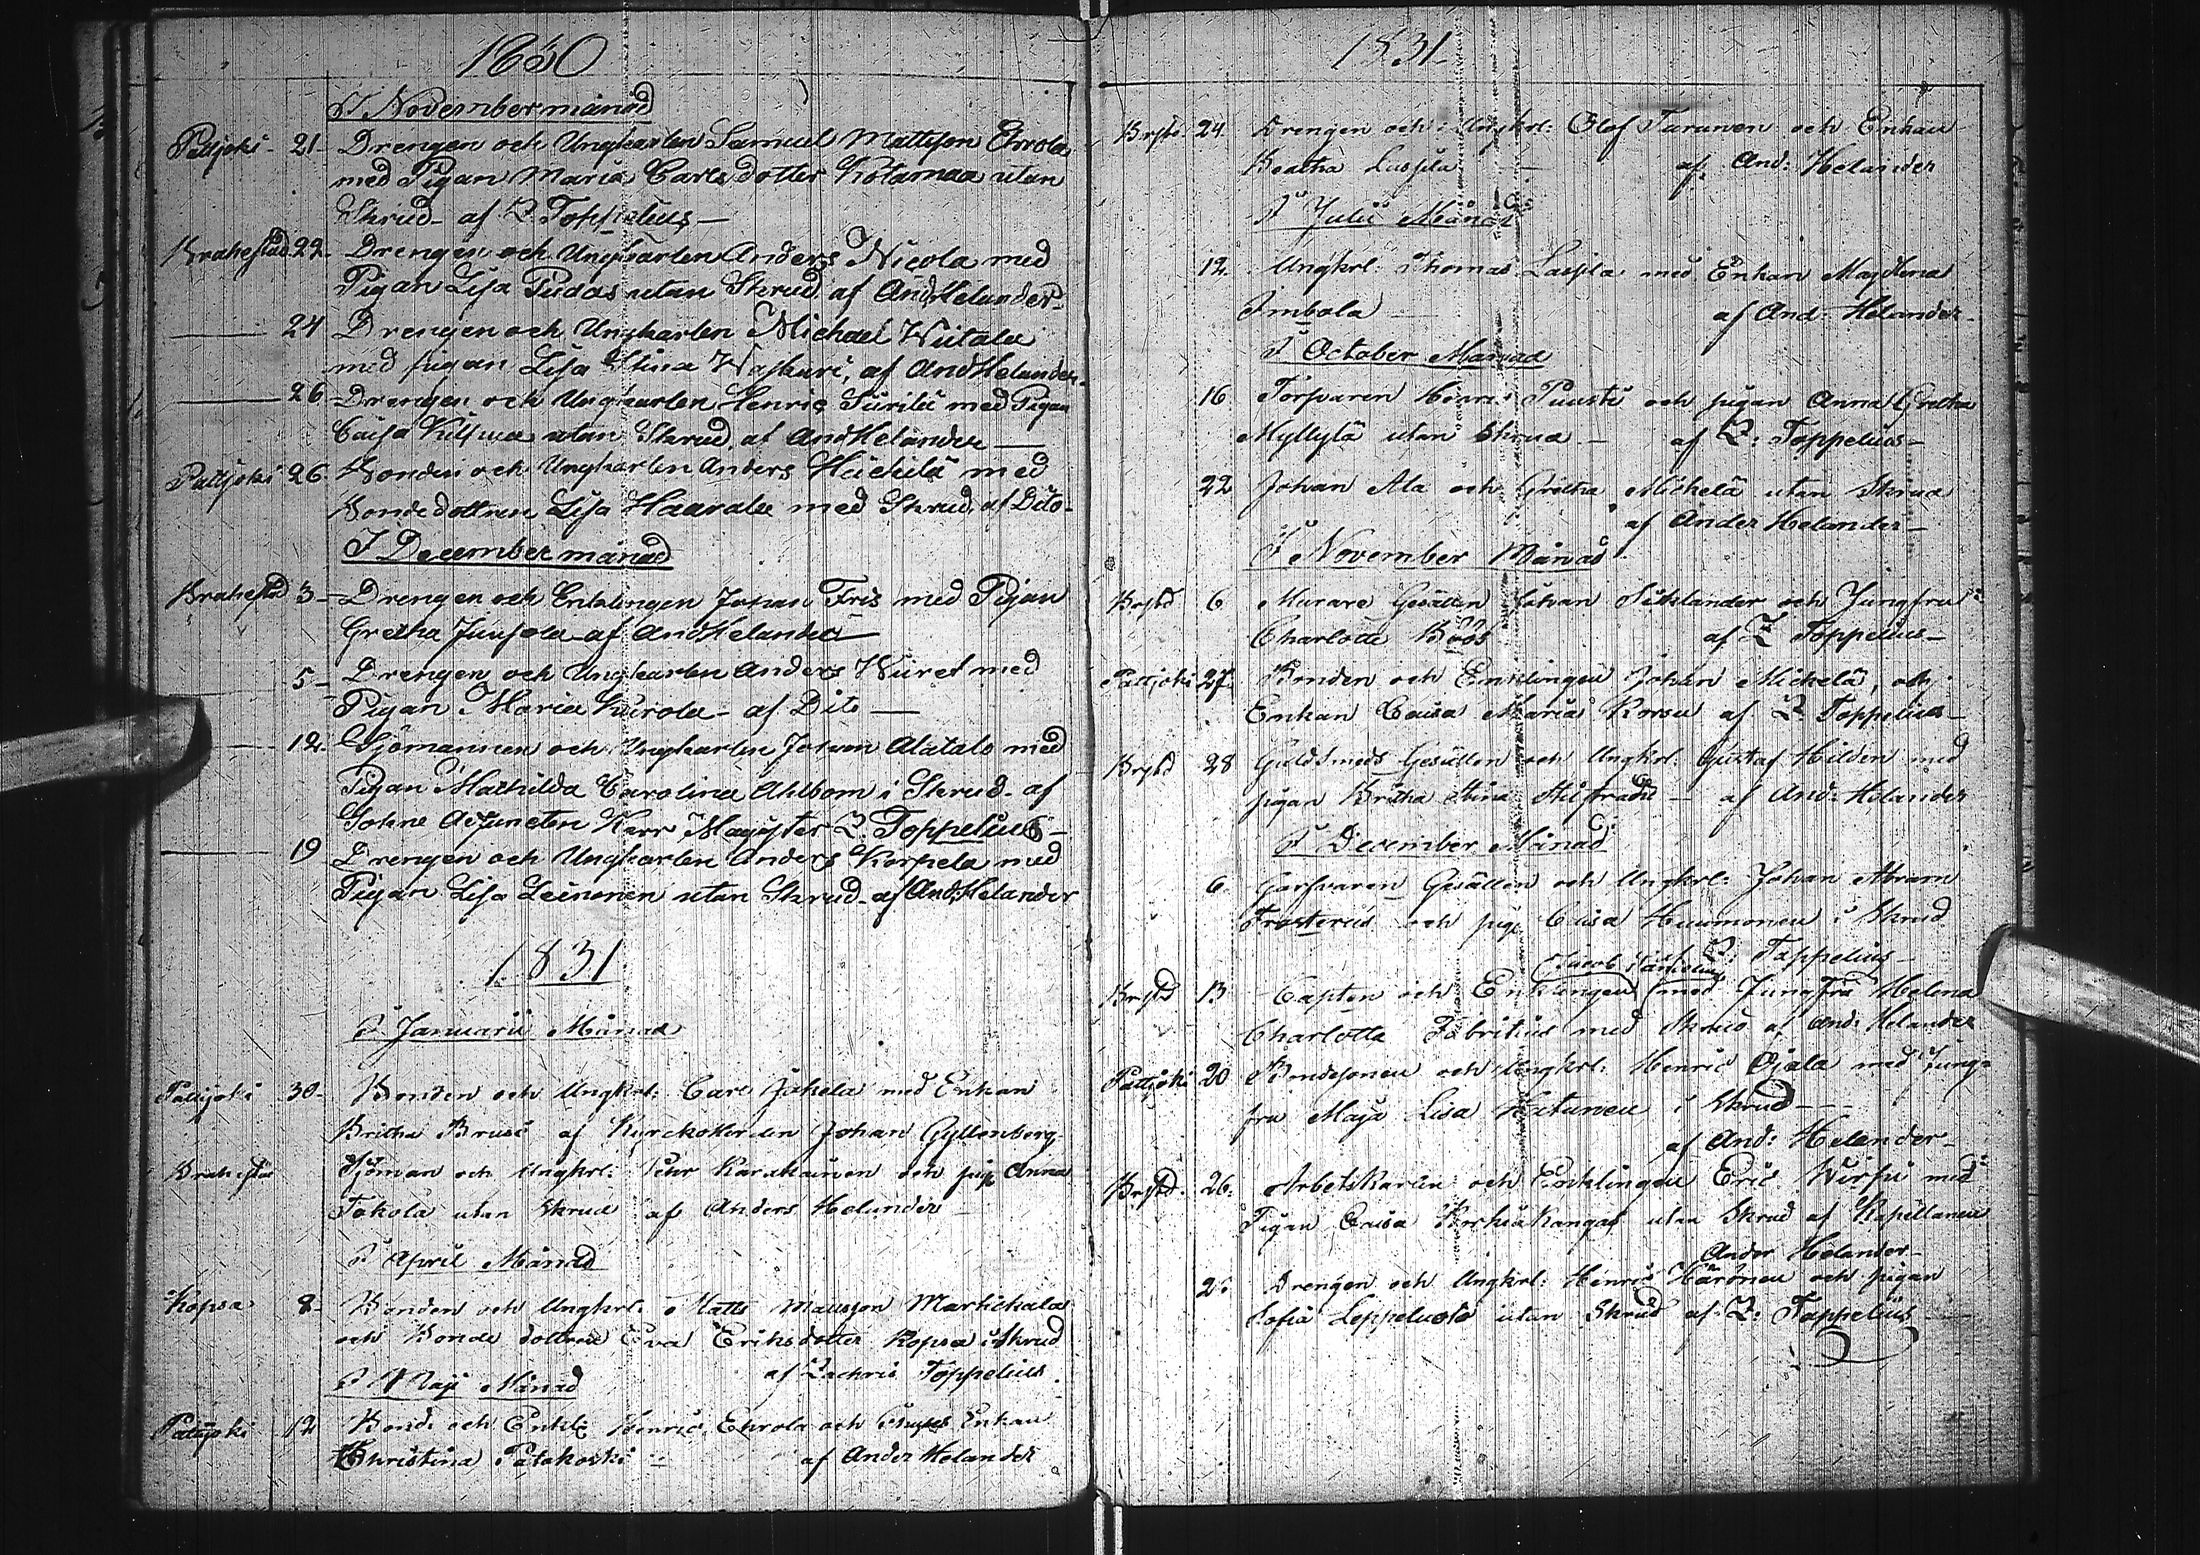 1830
I Novembermånad
Pattjoki 21 Drengen och Ungkarlen Samuel Mattsson Ehrola
med Pigan Maria Carlsdotter Kotamaa utan
Skrud af Z Toppelius
Brahestad 22 Drengen och Ungkarlen Anders Nicola med
Pigan Lisa Pudas utan Skrud af And Helander
24 Drengen och Ungkarlen Michael Wiitala
med pigan Lisa Stina Waskuri, af And Helander
26 Drengen och Ungkarlen Henric Siirilä med Pigan
Caisa utan Skrud af And Helander
Pattjoki 26 Bonden och Ungkarlen Anders Hiichilä med
Bondedottren Lisa Haarala med Skrud af Dito
I December månad
Brahestad 3 Drengen och Enklingen Johan Fris med Pigan
Gretha Junsola af And Helander
5 Drengen och Ungkarlen Anders Wiiret med
Pigan Maria Kuirola af Dito
12 Sjömannen och Ungkarlen Johan Alatalo med
Pigan Mathilda Carolina Ahlbom i Skrud af
Sokne Adjuncten Herr Magister Z. Toppelius
19 Drengen och Ungkarlen Anders Korpela med
Pigan Lisa Leinonen utan Skrud af And: Helander
1831
I Januarii Månad
Pattijoki 30 Bonden och Ungkrl: Carl Jokela med Enkan
Britha Brusi af Kyrckoherden Johan Gyllenberg
Brahestad Sjöman och Ungkrl: Pehr Karukainen och pig: Anna
Tokola utan Skrud af Anders Helander
I April Månad
Kopsa 8 Bonden och Ungkrl: Matts Mattsson Martickala
och Bonde dottren Eva Eriksdotter Kopsa i Skrud
af Zachris Toppelius
I Maji Månad
Pattijoki 12 Bond: och Enkl: Henric Ehrola och Enkan
Christina Patokoski af Ander Helander
1831
Brstd 24 Drengen och Ungkrl: Olof Turunen och Enkan
Beatha Laspila af And: Helander
I Julii Månad
12 Ungkrl: Thomas Laspila med Enkan Magdlena
Imbola af And: Helander
I October Månad
16 Torparen Henric Puusti och pigan Anna Gretha
Myllylä utan Skrud af Z: Toppelius
22 Johan Ala och Gretha Mickelä utan Skrud
af Ander Helander
I November Månad
Brstd 6 Murare Gesällen Johan Siklander och Jungfru
Charlotta Böös af Z Toppelius
Pattjoki 27 Bonden och Enklingen Johan Mickelä, och
Enkan Caisa Maria Korsu af Z Toppelius
Brstd 28 Guldsmeds Gesällen och Ungkrl: Gustaf Hilden med
pigan Britha Stina af And: Helander
I December Månad
6 Garfvaren Gesällen och Ungkrl: Johan Abram
Frosterus och pig: Caisa Huumonen i Skrud
Z: Toppelius
Jacob
Brstd 13 Capten och Enklingen med Jungfru Helena
Charlotta Fabritius med Skrud af And: Helander
Pattjoki 20 Bondsonen och Ungkrl: Henric Ojala med Jung-
fru Maja Lisa Katunen i Skrud
af And: Helander
Brstd 26 Arbetskarlen och Enklingen Eric Wirpi med
Pigan Caisa Korkiakangas utan Skrud af Kapellanen
Ander Helander
Drengen och Ungkrl: Henric Härönen och pigan
Sofia Leppeluoto utan Skrud af Z: Toppelius